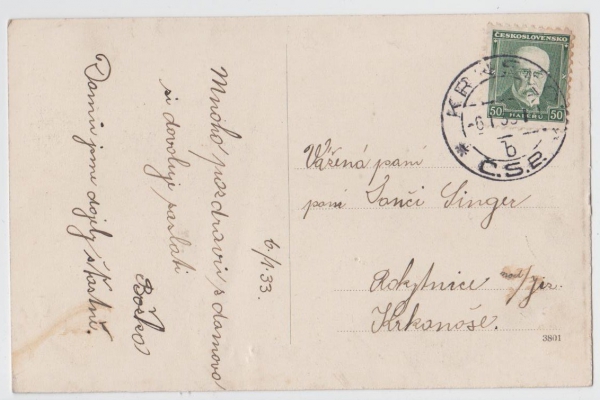 Mnoho pozdravů z domova
si dovoluji zaslati
Boška
Domů jsme dojely šťastně.
6/1.33.
ČESKOSLOVENSKO
50 HALÉŘŮ 50
-6.I.33
b
Č.S.P.
Vážená paní
paní Tonči Singer
Rokytnice nad/Jiz.
Krkonoše.
3801